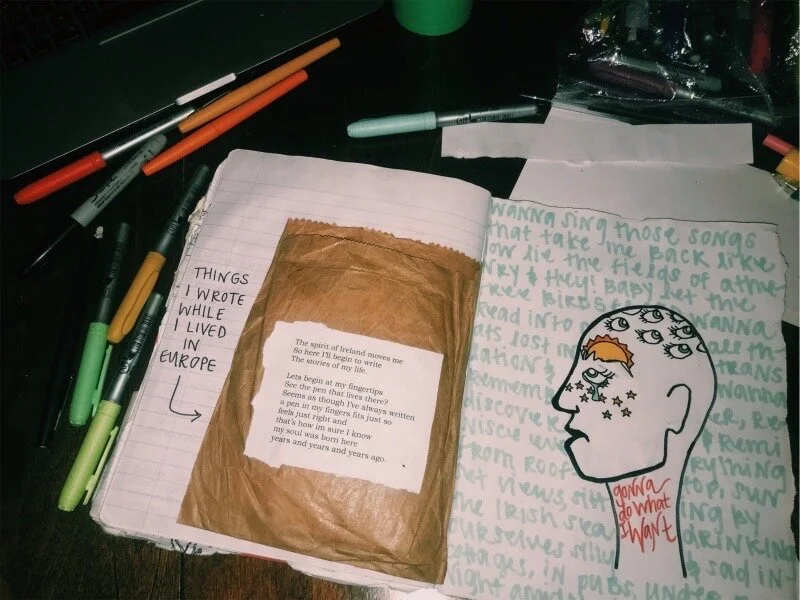 THINGS
I WROTE
WHILE
I LIVED
IN
EUROPE
The spirit of Ireland moves me
So here I'll begin to write
The stories of my life.
Lets begin at my fingertips
See the pen that lives there?
Seems as though I've always written
a pen in my fingers fits just so
feels just right and
that's how im sure I know
my soul was born here
years and years and years ago.
wanna sing those songs
that take me back like
ow lie the fields of athe
ry & Hey! Baby let the
ree birds wanna
read into
lost in
dation & trans
discove
& remi
from roof rything
et views, sitt top, sun
the Irish sea ing by
ourselves silly drinking
in pubs, under & sad in
gonna
do what
I want